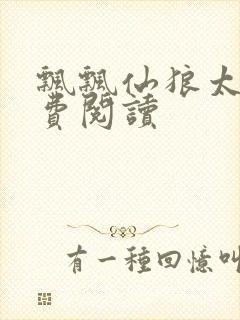 飄飄仙狼太
費閱讀
有一種回憶叫